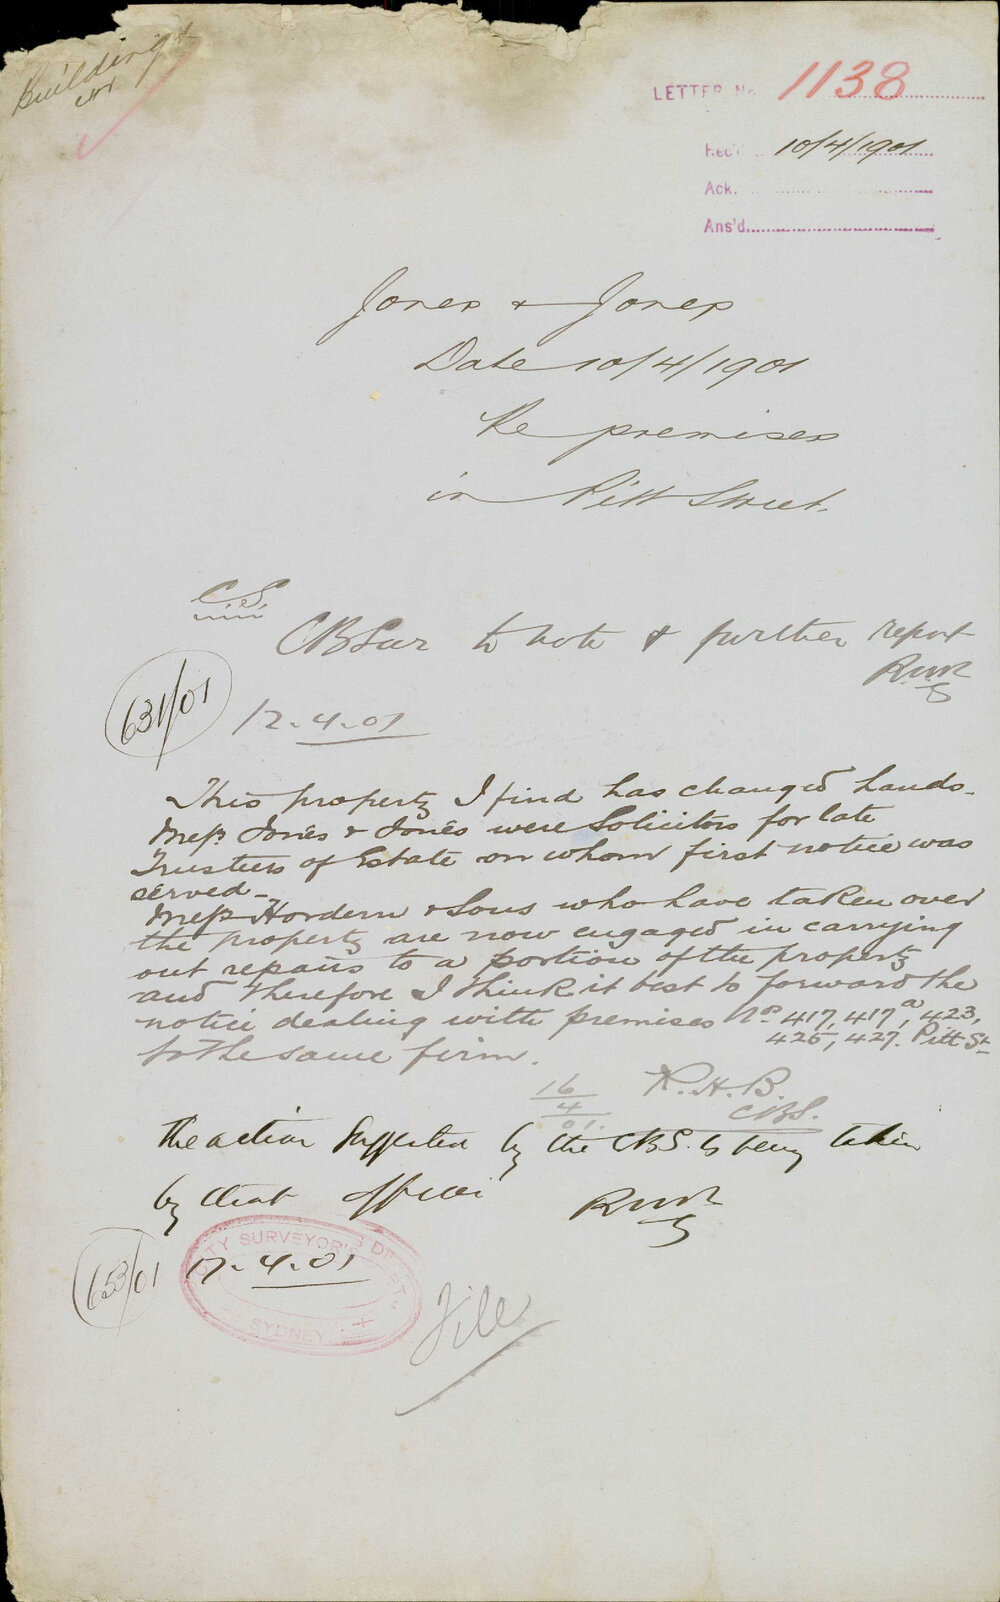 Buildings
LETTER No 1138
Rec'd 10/4/1901
Ack.
Ans'd
Jones & Jones
Date 10/4/1901
Re premises
in Pitt Street.
C.S.
CBSur to note & further report
RWR
CS
631/01
12.4.01
This property I find has changed hands.
Messrs Jones & Jones were Solicitors for late
Trustees of Estate on whom first notice was
served -
Messrs Hordern & Sons who have taken over
the property are now engaged in carrying
out repairs to a portion of the property
and therefore I think it best to forward the
notice dealing with premises Nos 417, 417a, 423,
425, 427. Pitt St
to the same firm.
16
4
01.
R.H.B.
CBS.
the action suggested by the CBS. is being taken
by that officer
RWR
CS
653/01
17.4.01
CITY SURVEYOR'S DEPT.
SYDNEY
File